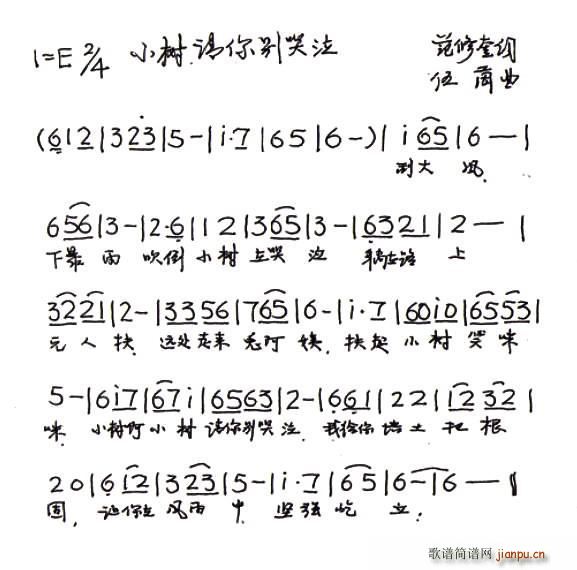 1=E 2/4 小树请你别哭泣
范修奎词
伍 曲
(6 1 2 | 3 2 3 | 5 - | i· 7 | 6 5 | 6 - ) | i 6 5 | 6 — |
刮大 风,
6 5 6 | 3 - | 2· 6 | 1 2 | 3 6 5 | 3 - | 6 3 2 1 | 2 — |
下暴 雨 吹倒 小树 在哭 泣 上
3 2 2 1 | 2 - | 3 3 5 6 | 7 6 5 | 6 - | i· 7 | 6 0 i 0 | 6 5 5 3 |
无 人 扶, 远处走来 阿 姨, 扶起 小 树 笑 咪
5 - | 6 i 7 | 6 7 i | 6 5 6 3 | 2 - | 6 6 1 | 2 2 | 1 2 3 2 |
咪, 小树呀 小 树 请你别哭泣, 我给你 培 土 把 根
2 0 | 6 1 2 | 3 2 3 | 5 - | i· 7 | 6 5 | 6 - | 6 — ‖
固, 让你在 风雨 中 坚强 屹 立.
歌谱简谱网
jianpu.cn